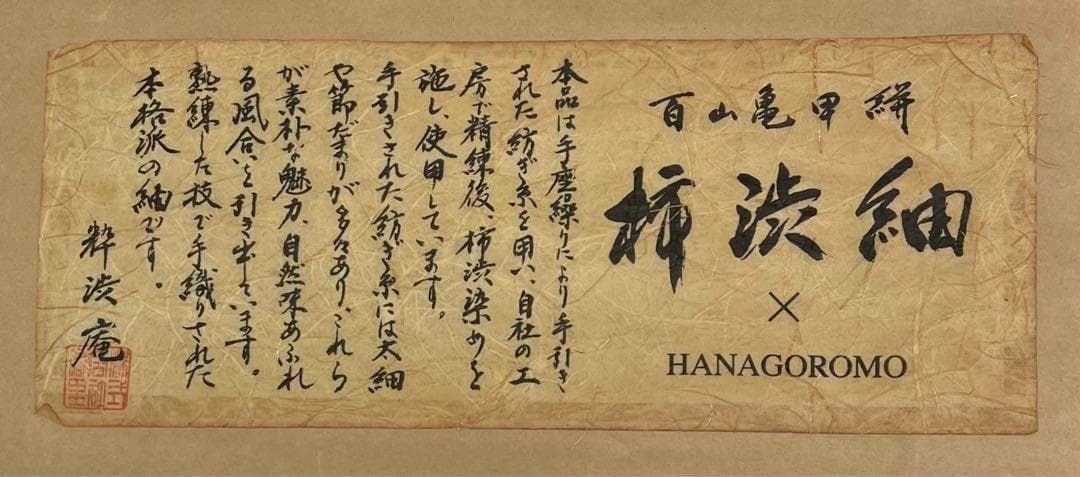 百山亀甲絣
柿渋紬
×
HANAGOROMO
本品は手座繰りにより手引き
された紡ぎ糸を用い、自社の工
房で精練後、柿渋染めを
施し、使用しています。
手引きされた紡ぎ糸には太細
や節だまりが多々あり、これら
が素朴な魅力、自然味あふれ
る風合いを引き出ています。
熟練した技で手織りされた
本格派の紬です。
粋渋庵